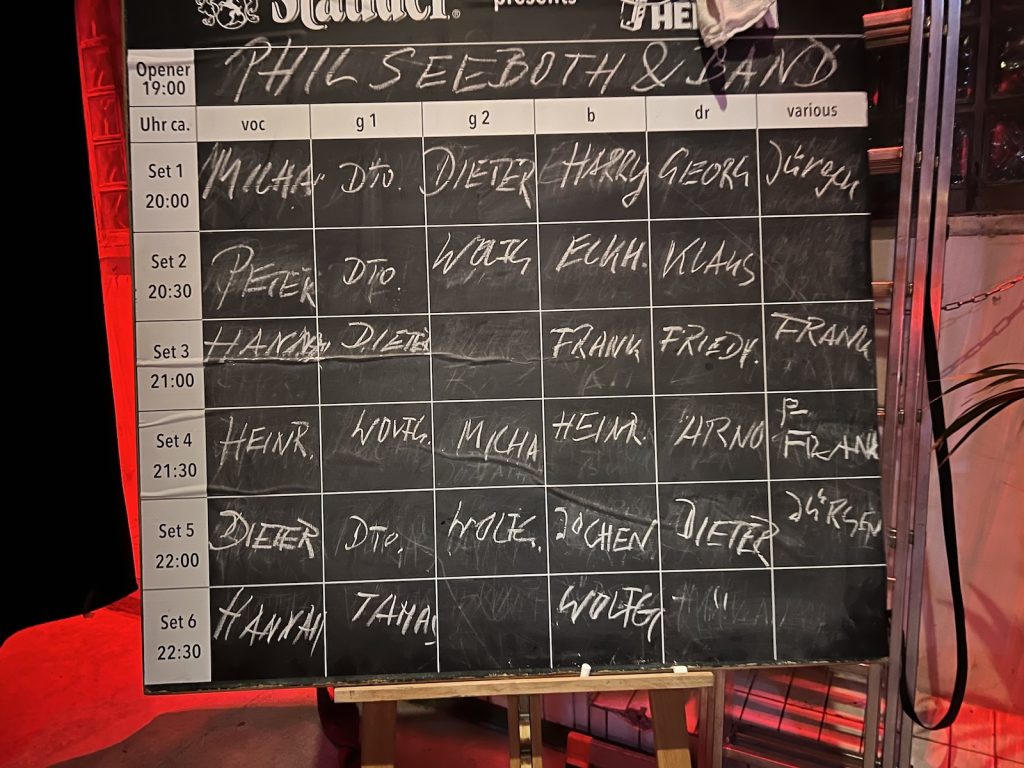 Stauder® presents HE
Opener 19:00 PHIL SEEBOTH & BAND
Uhr ca. voc g 1 g 2 b dr various
Set 1 20:00 MICHA DTO. DIETER HARRY GEORG Jürgen
Set 2 20:30 PETER DTO. WOLFG ECKH. KLAUS
Set 3 21:00 HANNAH DIETER FRANK FRIEDR. FRANK
Set 4 21:30 HEINR. WOLFG. MICHA HEINR. ARNO P-FRANK
Set 5 22:00 DIETER DTO. WOLFG. JOCHEN DIETER JÜRGEN
Set 6 22:30 HANNAH WOLFG "